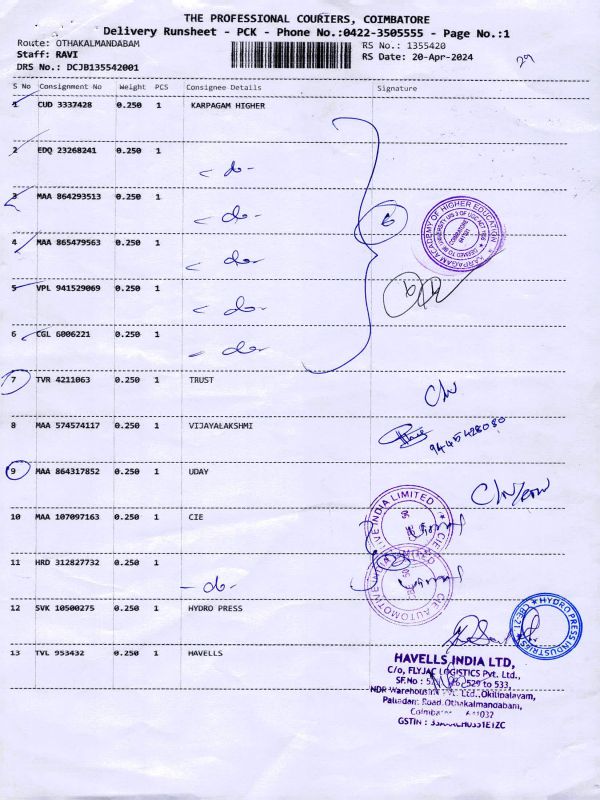 THE PROFESSIONAL COURIERS, COIMBATORE
Delivery Runsheet - PCK - Phone No.:0422-3505555 - Page No.:1
Route: OTHAKALMANDABAM RS No.: 1355420
Staff: RAVI RS Date: 20-Apr-2024
DRS No.: DCJB135542001
29
S No Consignment No Weight PCS Consignee Details Signature
1 CUD 3337428 0.250 1 KARPAGAM HIGHER
2 EDQ 23268241 0.250 1
- do -
3 MAA 864293513 0.250 1
- do -
6
KARPAGAM ACADEMY OF HIGHER EDUCATION
4 MAA 865479563 0.250 1
- do -
5 VPL 941529069 0.250 1
- do -
6 CGL 6006221 0.250 1
- do -
7 TVR 4211063 0.250 1 TRUST
8 MAA 574574117 0.250 1 VIJAYALAKSHMI
9445428080
9 MAA 864317852 0.250 1 UDAY
10 MAA 107097163 0.250 1 CIE
11 HRD 312827732 0.250 1
- do -
CIE AUTOMOTIVE INDIA LIMITED
12 SVK 10500275 0.250 1 HYDRO PRESS
HYDRO PRESS INDUSTRIES
13 TVL 953432 0.250 1 HAVELLS
HAVELLS INDIA LTD,
C/o, FLYJAC LOGISTICS Pvt. Ltd.,
SF.No : 529 to 533,
NDR Warehousing Pvt. Ltd.,Okilipalayam,
Palladam Road,Othakalmandabam,
Coimbatore 641032
GSTIN :